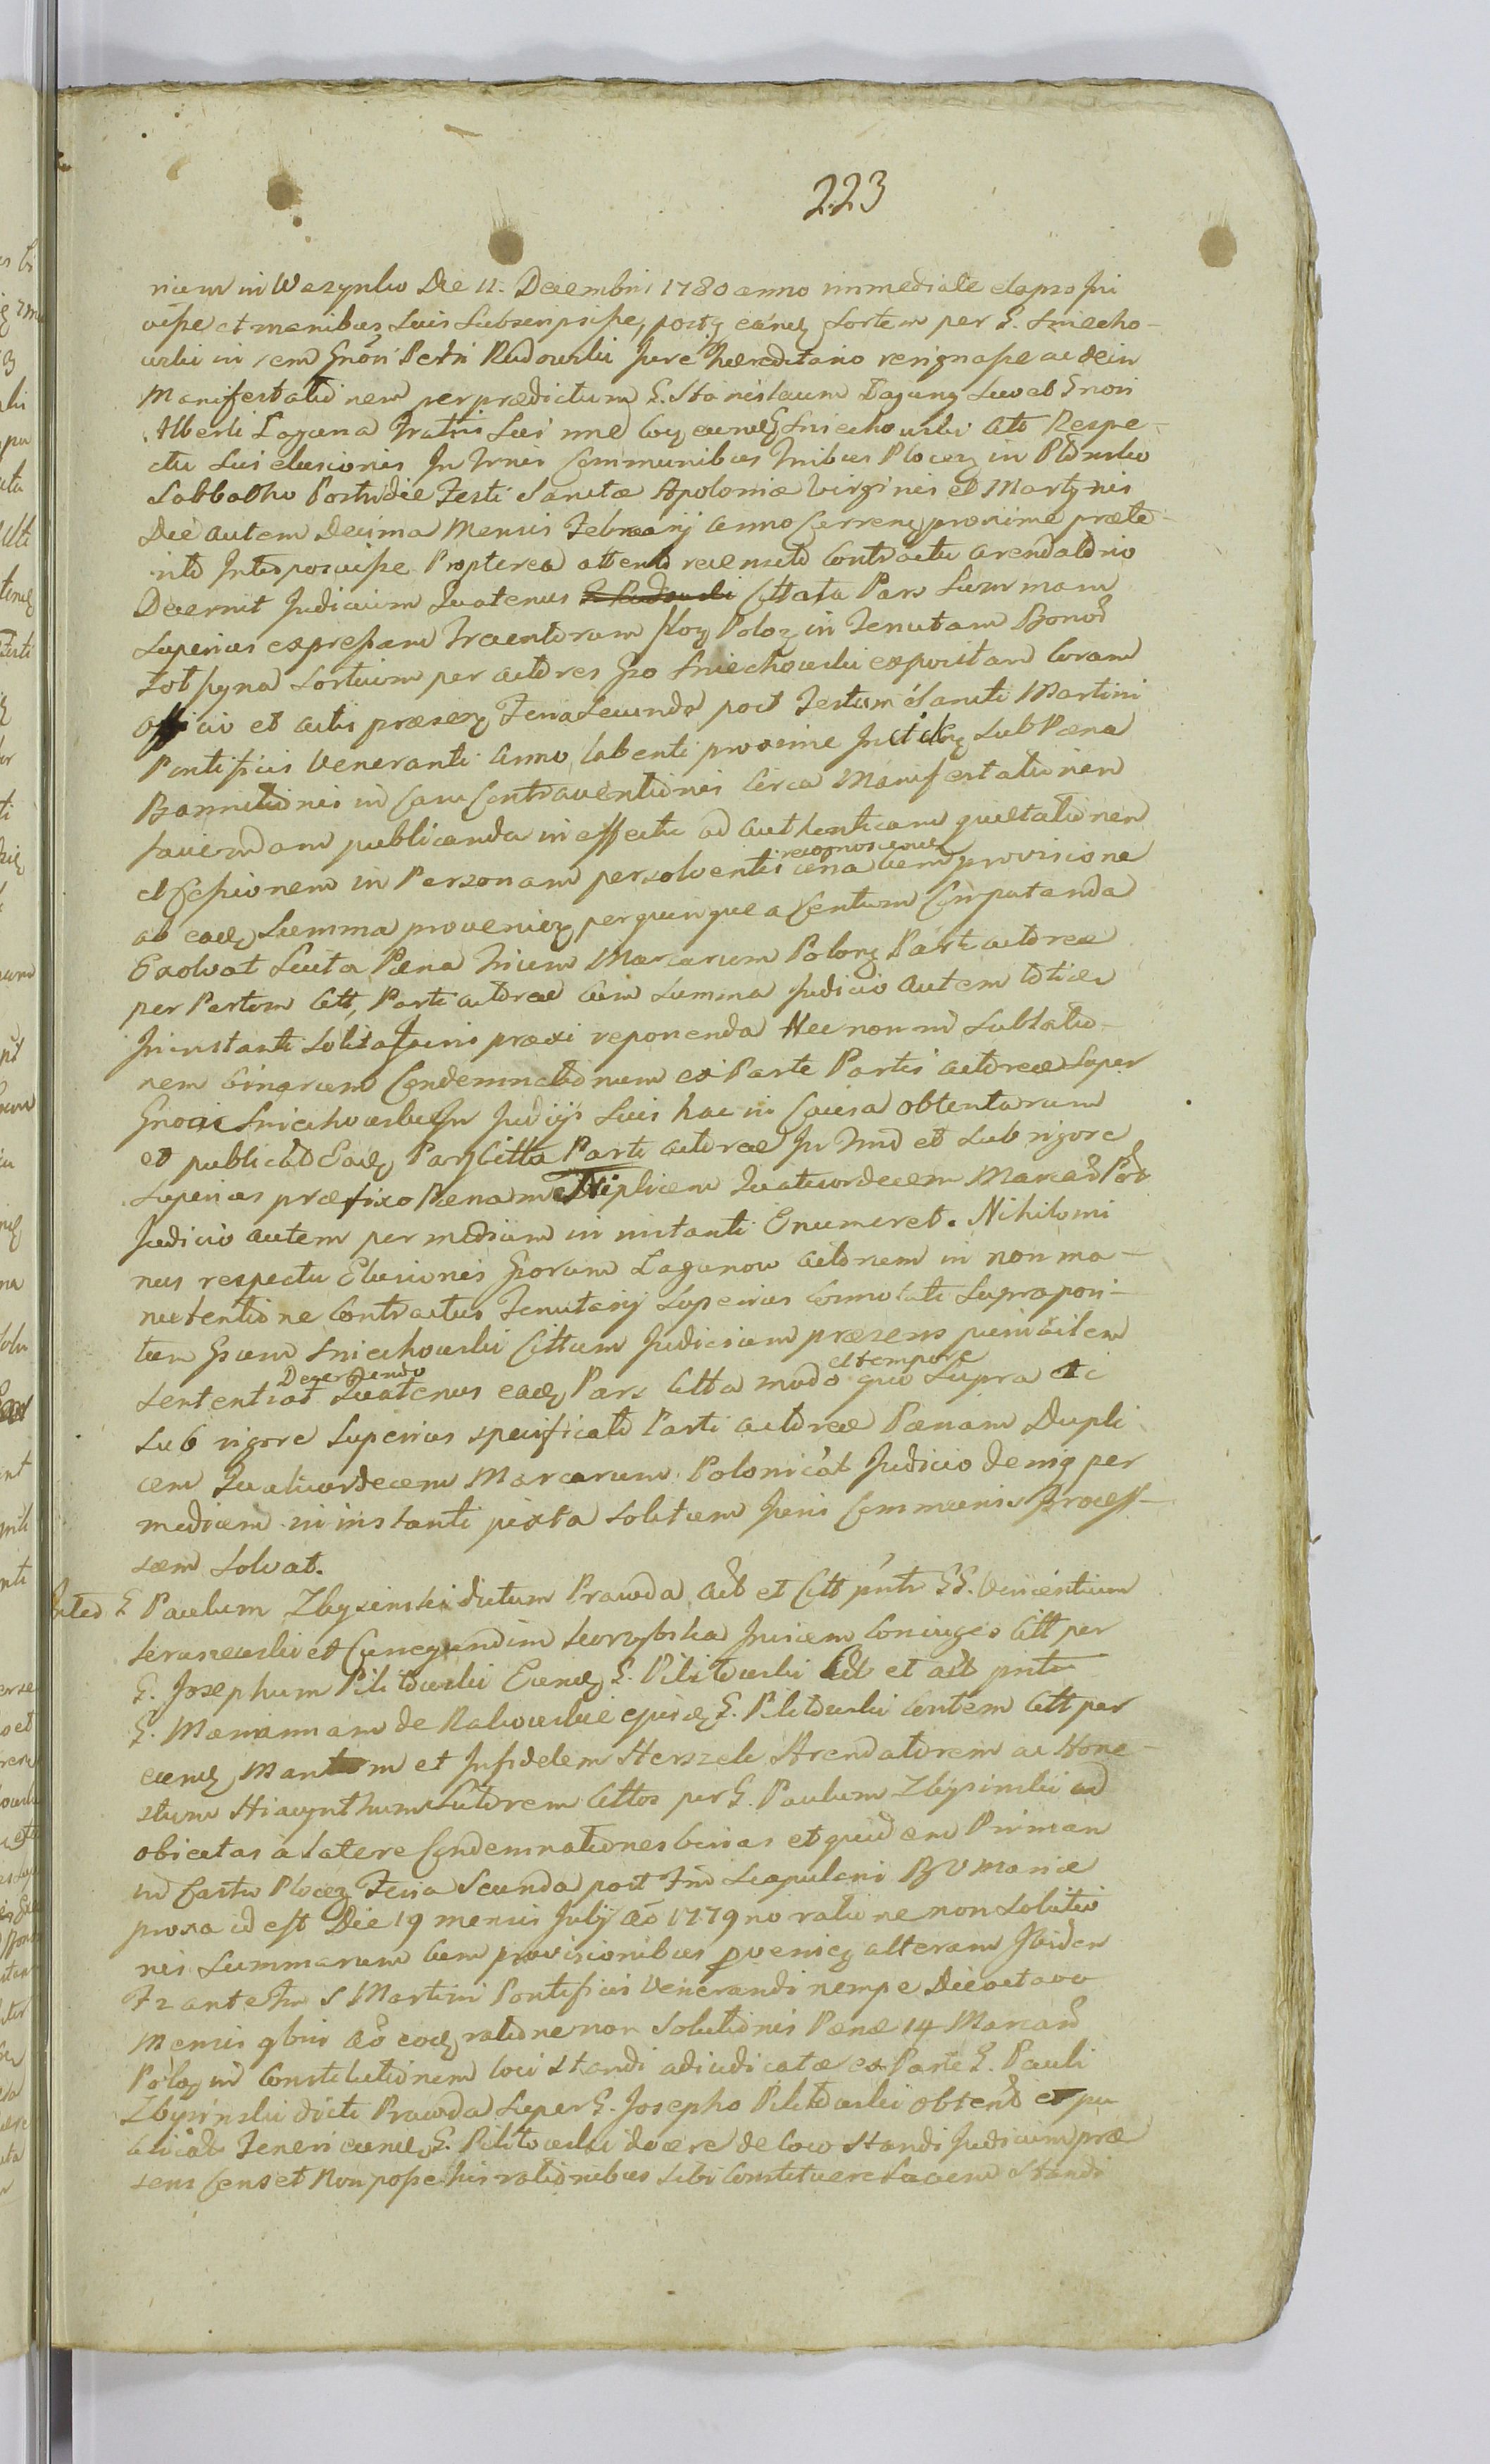 223
nium in Wezynko Die 11. Decembris 1780 anno immediate elapso Ini
visse et manibus Suis Subscripsisse, postq eandz Sortem per G. Sniecho-
wski in rem Gnosi Petri Rudowski Jure Haereditario resignasse ac dein
Manifestationem per praedictum G. Stanislaum Laguny suo et Gnosi
Alberti Laguna Fratris Sui nne Coq eundz Sniechowski Ato Respe-
ctu Sui elusionis In Trnis Communibus Tribus Plocen in Plonsko
Sabbatho Postridie Festi Sanctae Apoloniae Virginis et Martyris
Die autem Decima Mensis Februarij Anno Curren proxime praete-
rito Interposuisse Propterea attento recensito Contractu arendatorio
Decernit Judicium Quatenus G Rudowski Cittata Pars Summam
Superius expressam Trecentorum flor Polo in Tenutam Bonor
Sortium per actores Gso Sniechowski expositam Coram
Officio et actis praesen Feria Secunda post Festum Sancti Martini
Pontificis Veneranti Anno labenti proxime Inciden Sub Paena
Bannitionis in Casu Contraventionis Circa Manifestationem
faciendam publicanda in effectu ad authenticam quietationem
recognoscendz
et Cessionem in Personam persolventis una cum provisione
ab eadz Summa provenien per quinque a Centum Computanda
Exolvat Luita Paena Trium Marcarum Polon Parti actoreae
per Partem Citt, Parti actoreae cum Summa Judicio autem toties
In instanti Solita Juris praxi reponenda Nec non in Sublatio-
nem binarum Condemnationum ex Parte Partis actoreae Super
Gnosi Sniechowski In Judicijs Suis hac in Causa obtentarum
et publicat Eadz Pars Citta Parti actoreae In Tmo et Sub rigore
Superius praefixo Paenam Triplicem Quatuordecem Marcar Pol
Judicio autem per mediam in instanti Enumeret. Nihilomi
nus respectu Elusionis Gsorum Lagunow Actorum in non ma-
nutentione Contractus Tenutarij Superius connotati Supraposi-
tum Gsum Sniechowski Cittum Judicium praesens punibilem
Decernendo et tempore
Sententiat Quatenus eadz Pars Citta modo quo Supra etc
Sub rigore Superius specificato Parti actoreae Paenam Dupli
cem Quatuordecem Marcarum Polonicat Judicio deniq per
mediam in instanti juxta Solitum Juris Communis Process-
sum Solvat.
Inter G Paulum Zbysinski dictum Prawda Act et Citt pnte GG. Vincentium
et Cunegundim Skorzyska Invicem Coniuges Citt per
G. Josephum Pilitowski Eundz G. Pilitowski Citt et act pnte
G. Mariannam de Rakowskie ejusdz G. Pilitowski Contem Citt per
eundz Maritum et Infidelem Herszek Arendatorem ac Hone-
stum Hiacynthum Sutorem Cittos per G. Paulum Zbysinski ad
obiectas a latere Condemnationes binas et quidem Primam
in Castro Plocen Feria Secunda post Fm Scapularis B V Mariae
proxa id est Die 19 mensis Julij Ao 1779 no ratione non Solutio
nis Summarum cum provisionibus pvenien alteram Ibidem
Fz ante Fm S Martini Pontificis Venerandi nempe Die octavo
Mensis 9bris Ao eodz ratione non Solutionis Paenae 14 Marcar
Polo in Constitutionem loci standi adiudicatae ex Parte G. Pauli
Zbysinski dicti Prawda Super G. Josepho Pilitowski obtent et pu
blicat Teneri eundz G. Pilitowski docere de loco Standi Judicium prae
sens Censet Non posse his rationibus Sibi Constituere Locum Standi